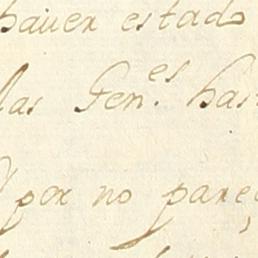 hauer estado
las Gen.es has
Y por no pare